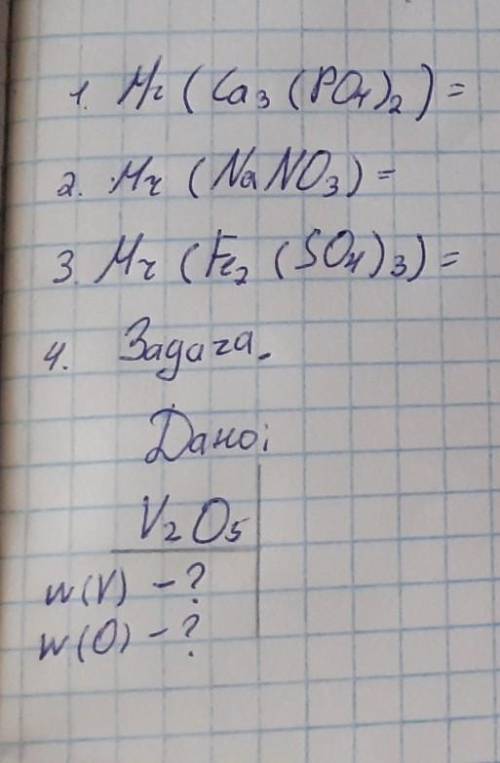 1. Mr (Ca₃ (PO₄)₂) =
2. Mr (NaNO₃) =
3. Mr (Fe₂ (SO₄)₃) =
4. Задача.
Дано:
V₂O₅
w(V) - ?
w(O) - ?